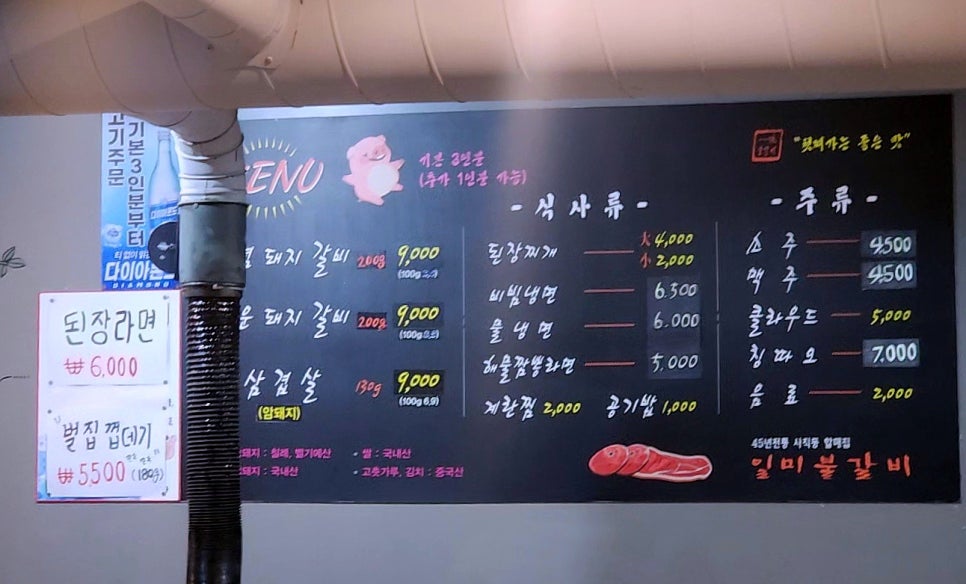 고기주문
기본 3인분부터
다이아몬드
DIAMOND
된장라면
₩6,000
벌집껍데기
₩5,500 (180g)
MENU
기본 3인분
(추가 1인분 가능)
돼지 갈비 200g 9,000
돼지 갈비 200g 9,000
삼겹살 130g 9,000
(암돼지) (100g 6.9)
돼지 : 칠레, 벨기에산
돼지 : 국내산
- 쌀 : 국내산
- 고춧가루, 김치 : 중국산
- 식사류 -
된장찌개 大 4,000
小 2,000
비빔냉면 6.300
물냉면 6.000
해물짬뽕라면 5,000
계란찜 2,000 공기밥 1,000
"뒷테가는 좋은 맛"
- 주류 -
소주 4,500
맥주 4,500
클라우드 5,000
칭따오 7,000
음료 2,000
45년전통 사직동 할매집
일미불갈비